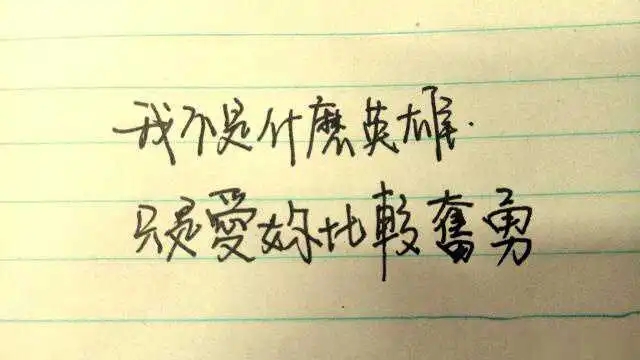 我不是什麽英雄.
只是愛妳比較奮勇